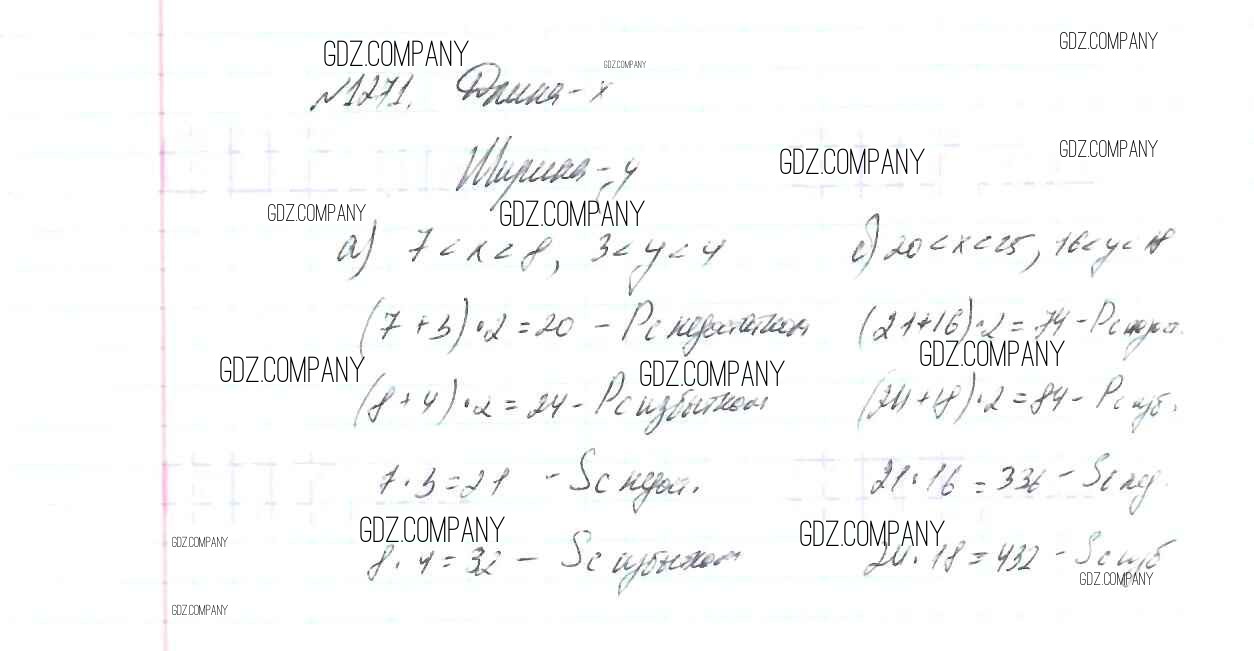 GDZ.COMPANY
GDZ.COMPANY
GDZ.COMPANY
№1271. Длина - x
GDZ.COMPANY
GDZ.COMPANY
Ширина - y
GDZ.COMPANY
GDZ.COMPANY
а) 7 < x < 8, 3 < y < 4
(7 + 3) · 2 = 20 - P с недостатком
GDZ.COMPANY
GDZ.COMPANY
(8 + 4) · 2 = 24 - P с избытком
7 · 3 = 21 - S с недост.
GDZ.COMPANY
GDZ.COMPANY
8 · 4 = 32 - S с избытком
GDZ.COMPANY
с) 20 < x < 25, 16 < y < 18
(21+16) · 2 = 74 - P с
GDZ.COMPANY
(24+18) · 2 = 84 - P с изб.
21 · 16 = 336 - S с нед.
GDZ.COMPANY
24 · 18 = 432 - S с изб
GDZ.COMPANY